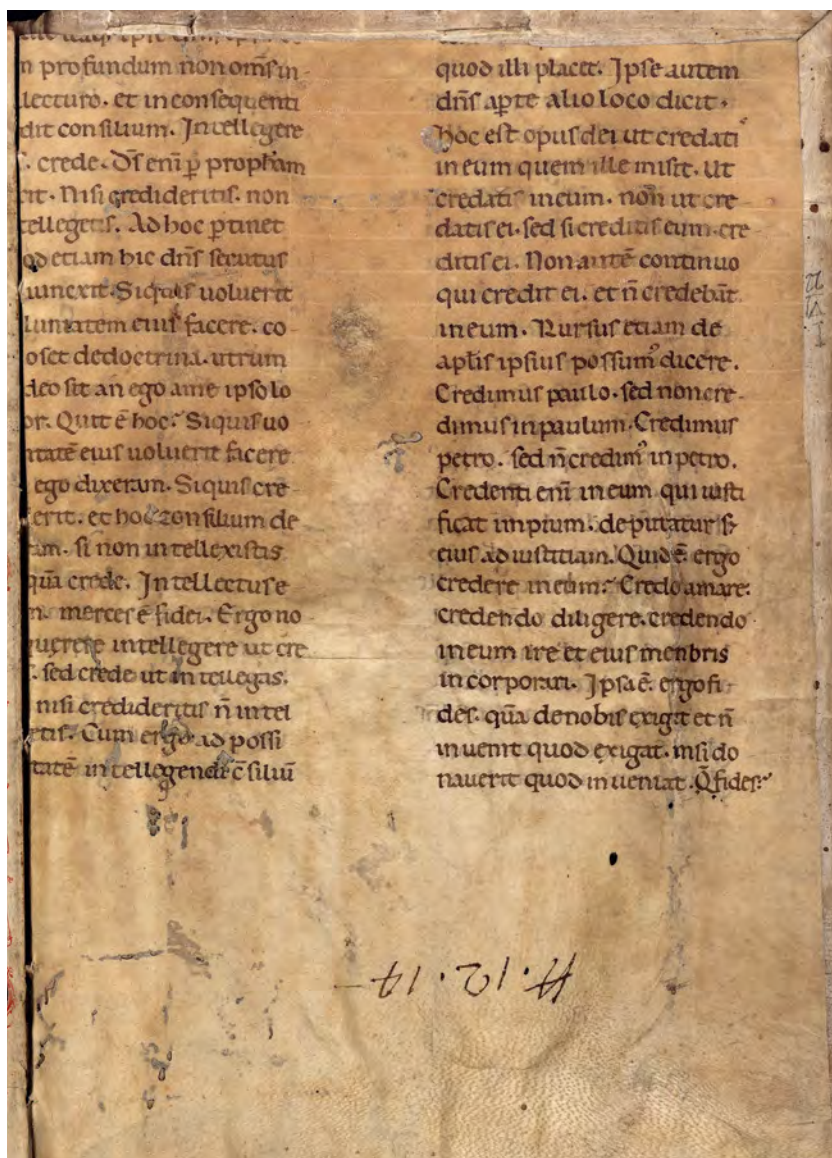 n profundum non om̅s in
lecturo. et inconsequenti
dit consilium. Intellegere
. crede. D̅s eni̅ p̲ prop̅ham
it. Nisi credideritis. non
tellegetis. Ad hoc p̲tinet
od etiam hic dn̅s secutus
iunexit. Siquis uoluerit
luntatem eius facere. co
oscet dedoctrina. utrum
deo sit an ego ame ipso lo
or. Quit e̅ hoc? Siquis uo
ntate̅ eius uoluerit facere
ego dixeram. Siquis cre
erit. et hoc consilium de
am. si non intellexistis
qua̅ crede. Intellectus e
m. merces e̅ fidei. Ergo no
querere intellegere ut cre
. sed crede ut intellegas.
nisi credideritis n̅ intel
etis. Cum ergo ad possi
tate̅ intellegendi c̅siliu̅
quod illi placet. Ipse autem
dn̅s ap̲te alio loco dicit.
hoc est opus dei ut credatiꝰ
in eum quem ille misit. Ut
credatis ineum. non̅ ut cre
datis ei. sed si creditis eum. cre
ditis ei. Non aute̅ continuo
qui credit ei. et n̅ credeba̅t
ineum. Rursus etiam de
apl̅is ipsius possumꝰ dicere.
Credimus paulo. sed non cre
dimus inpaulum. Credimus
petro. sed n̅ credimꝰ in petro.
Credenti eni̅ ineum qui iusti
ficat impium. deputatur
eius ad iustitiam. Quid e̅ ergo
credere ineum? Credo amare.
credendo diligere. credendo
ineum ire et eius menbris
incorporari. Ipsa e̅. ergo fi
des. qua̅ denobis exigit et n̅
inuenit quod exigat. nisi do
nauerit quod inueniat. Q̅ fides?
H.12.17